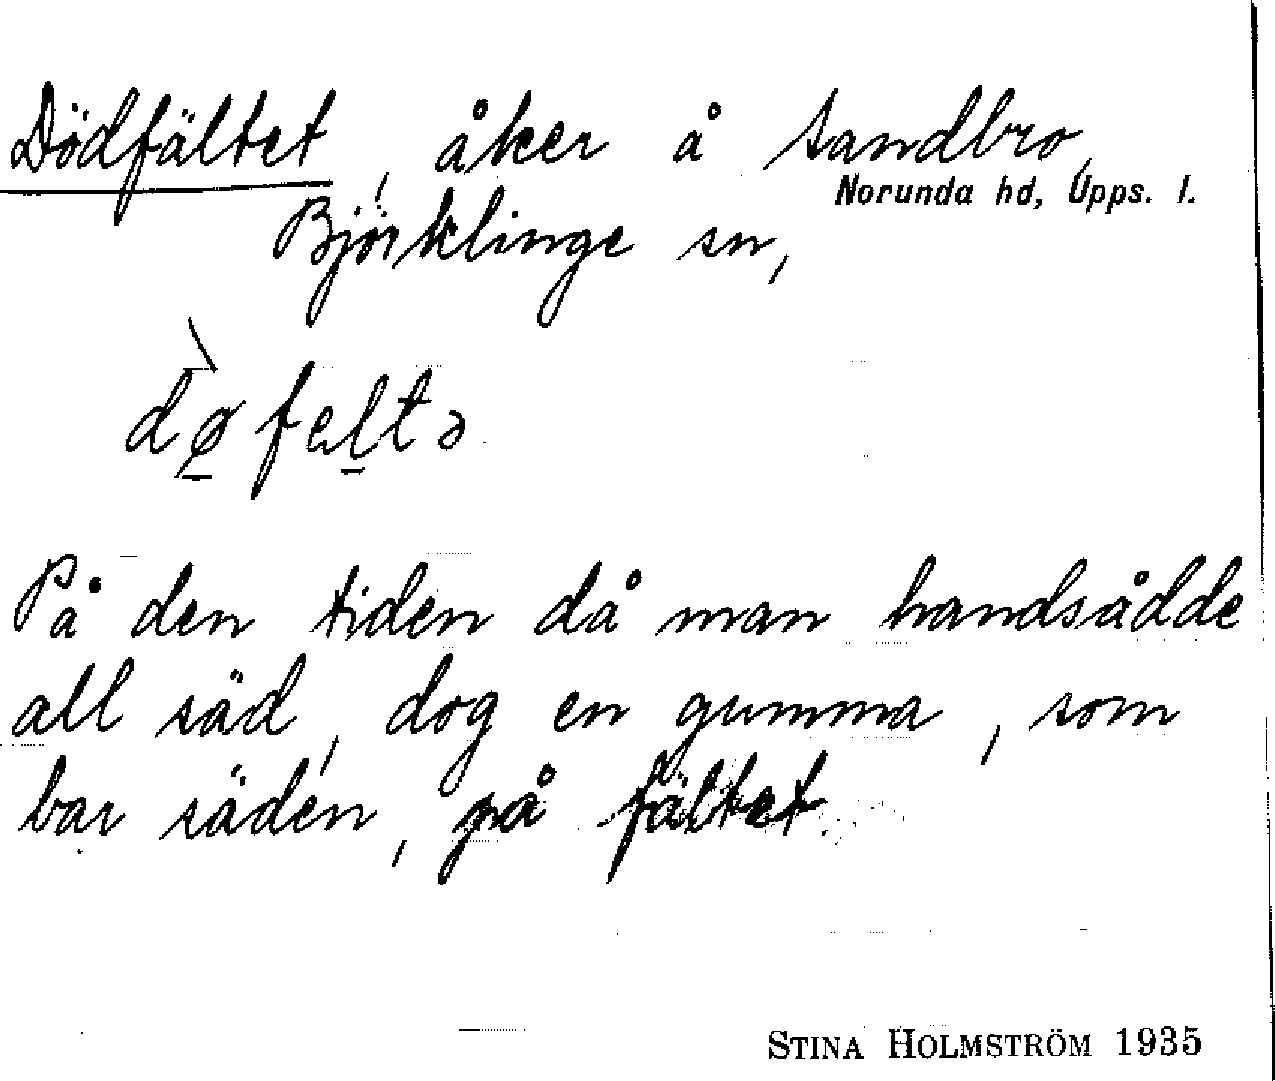 Dödfältet, åker å Sandbro,
Norunda hd, Upps. l.
Björklinge sn,
dø̱̀felt̠ə
På den tiden då man handsådde
all säd, dog en gumma, som
bar säden, på fältet.
STINA HOLMSTRÖM 1935